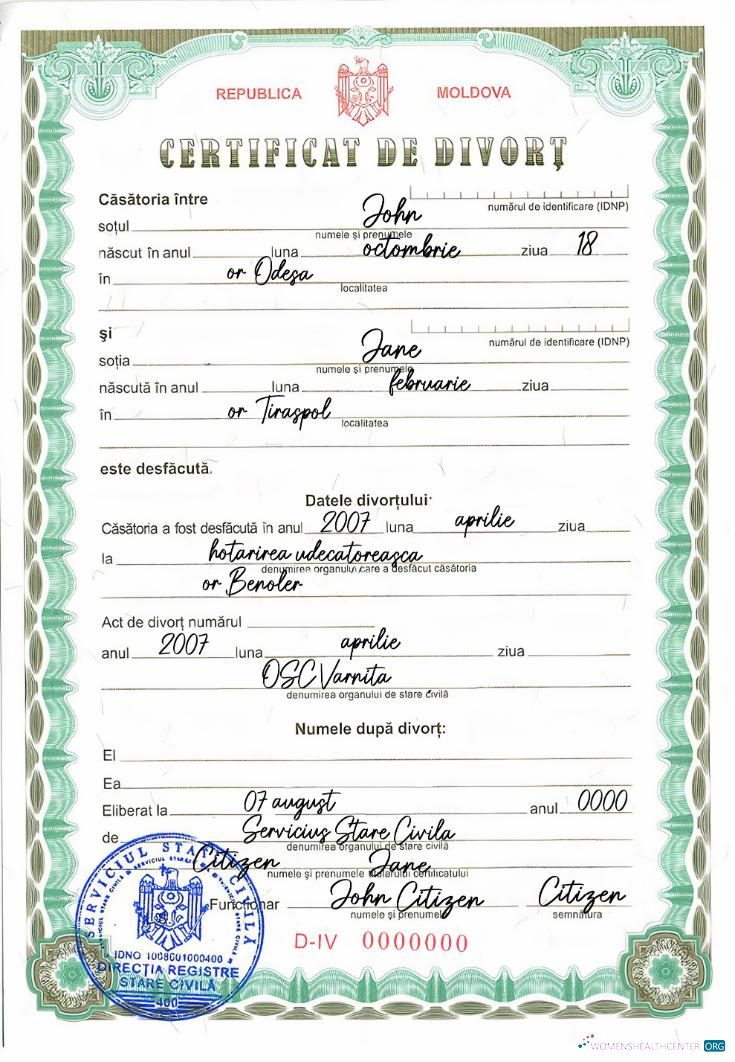 REPUBLICA MOLDOVA
CERTIFICAT DE DIVORȚ
Căsătoria între
numărul de identificare (IDNP)
soțul John
numele și prenumele
născut în anul luna octombrie ziua 18
în or Odesa
localitatea
și
numărul de identificare (IDNP)
soția Jane
numele și prenumele
născută în anul luna februarie ziua
în or Tiraspol
localitatea
este desfăcută.
Datele divorțului:
Căsătoria a fost desfăcută în anul 2007 luna aprilie ziua
la hotarirea udecatoreasca
denumirea organului care a desfăcut căsătoria
or Benoler
Act de divorț numărul
anul 2007 luna aprilie ziua
OSC Varnita
denumirea organului de stare civilă
Numele după divorț:
El
Ea
Eliberat la 07 august anul 0000
de Servicius Stare Civila
denumirea organului de stare civilă
Citizen Jane
numele și prenumele titularului certificatului
Funcționar John Citizen Citizen
numele și prenumele semnătura
D-IV 0000000
SERVICIUL STARE CIVILĂ
IDNO 1008601000400
DIRECȚIA REGISTRE
STARE CIVILĂ
400
WOMENSHEALTHCENTER.ORG